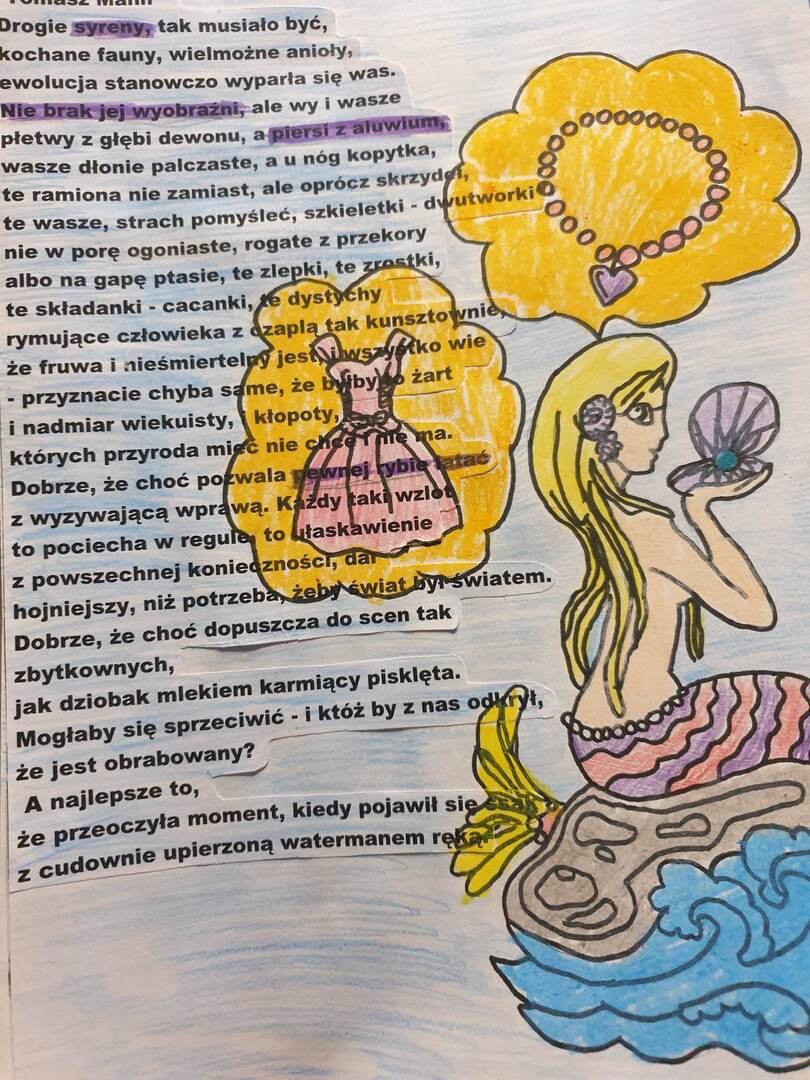 Tomasz Mann
Drogie syreny, tak musiało być,
kochane fauny, wielmożne anioły,
ewolucja stanowczo wyparła się was.
Nie brak jej wyobraźni, ale wy i wasze
płetwy z głębi dewonu, a piersi z aluwium,
wasze dłonie palczaste, a u nóg kopytka,
te ramiona nie zamiast, ale oprócz skrzydeł,
te wasze, strach pomyśleć, szkieletki - dwutworki
nie w porę ogoniaste, rogate z przekory
albo na gapę ptasie, te zlepki, te zrostki,
te składanki - cacanki, te dystychy
rymujące człowieka z czaplą tak kunsztownie,
że fruwa i nieśmiertelny jest, i wszystko wie
- przyznacie chyba same, że byłby to żart
i nadmiar wiekuisty, i kłopoty,
których przyroda mieć nie chce i nie ma.
Dobrze, że choć pozwala pewnej rybie latać
z wyzywającą wprawą. Każdy taki wzlot
to pociecha w regule, to ułaskawienie
z powszechnej konieczności, dar
hojniejszy, niż potrzeba, żeby świat był światem.
Dobrze, że choć dopuszcza do scen tak
zbytkownych,
jak dziobak mlekiem karmiący pisklęta.
Mogłaby się sprzeciwić - i któż by z nas odkrył,
że jest obrabowany?
A najlepsze to,
że przeoczyła moment, kiedy pojawił się ssak
z cudownie upierzoną watermanem ręką.